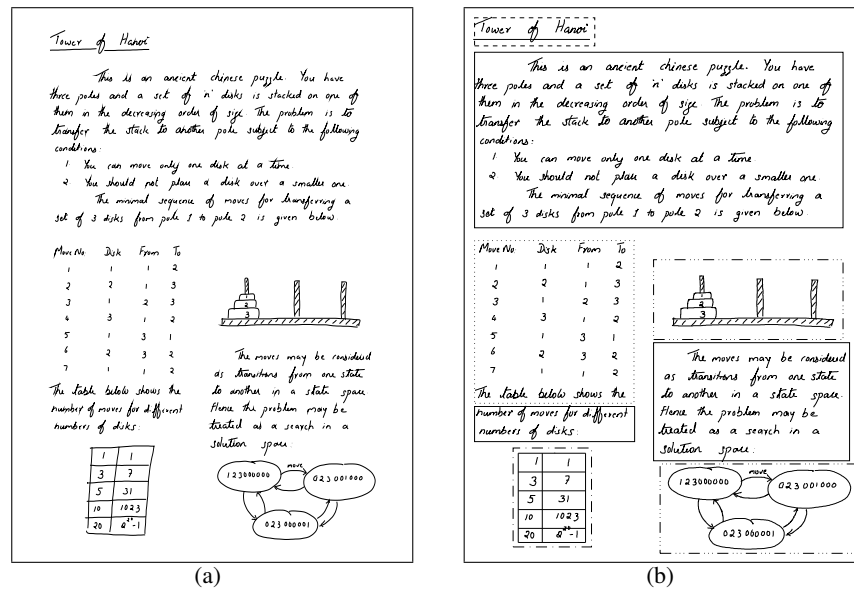 Tower of Hanoi
This is an ancient chinese puzzle. You have
three poles and a set of 'n' disks is stacked on one of
them in the decreasing order of size. The problem is to
transfer the stack to another pole subject to the following
conditions:
1 You can move only one disk at a time.
2 You should not place a disk over a smaller one.
The minimal sequence of moves for transferring a
set of 3 disks from pole 1 to pole 2 is given below.
Move No. Disk From To
1 1 1 2
2 2 1 3
3 1 2 3
4 3 1 2
5 1 3 1
6 2 3 2
7 1 1 2
The table below shows the
number of moves for different
numbers of disks:
1 1
3 7
5 31
10 1023
20 2^20-1
1
2
3
The moves may be considered
as transitions from one state
to another in a state space.
Hence the problem may be
treated as a search in a
solution space:
move
123000000
023001000
023000001
(a)
Tower of Hanoi
This is an ancient chinese puzzle. You have
three poles and a set of 'n' disks is stacked on one of
them in the decreasing order of size. The problem is to
transfer the stack to another pole subject to the following
conditions:
1 You can move only one disk at a time.
2 You should not place a disk over a smaller one.
The minimal sequence of moves for transferring a
set of 3 disks from pole 1 to pole 2 is given below.
Move No. Disk From To
1 1 1 2
2 2 1 3
3 1 2 3
4 3 1 2
5 1 3 1
6 2 3 2
7 1 1 2
The table below shows the
number of moves for different
numbers of disks:
1 1
3 7
5 31
10 1023
20 2^20-1
1
2
3
The moves may be considered
as transitions from one state
to another in a state space.
Hence the problem may be
treated as a search in a
solution space:
move
123000000
023001000
023000001
(b)